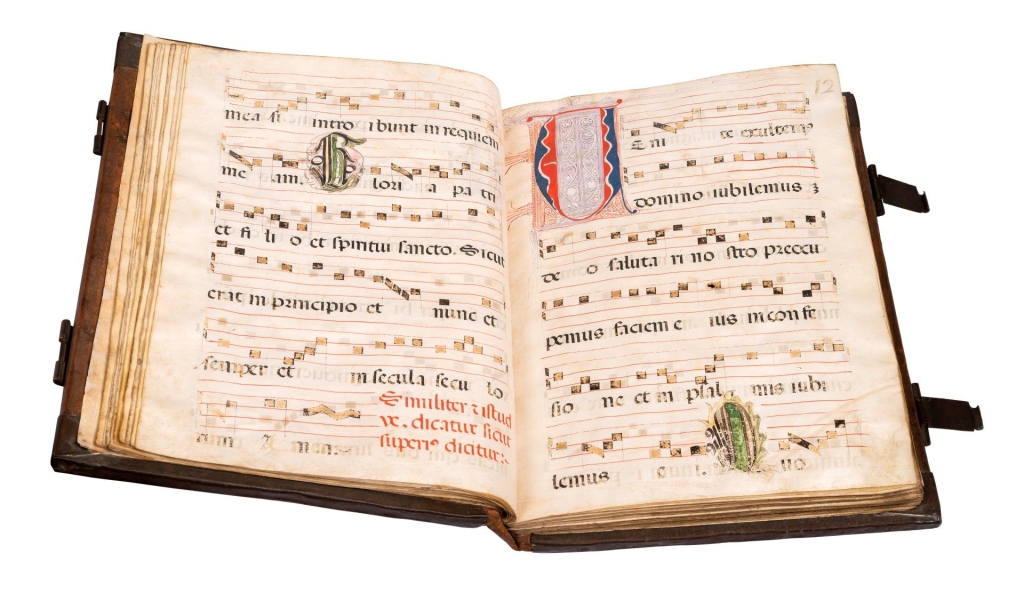 mea si intro ibunt in requiem
me am. Glori a pa tri
et fi li o et spiritui sancto. Sicut
erat in principio et nunc et
semper et in secula secu lo
rum A men:
Similiter ⁊ istud
dicatur sicut
superiꝰ dicitur:
12
Veni te exultemꝰ
domino iubilemus
de o saluta ri no stro preocu
pemus faciem e ius in confes
sio ne et in psal mis iubi
lemus